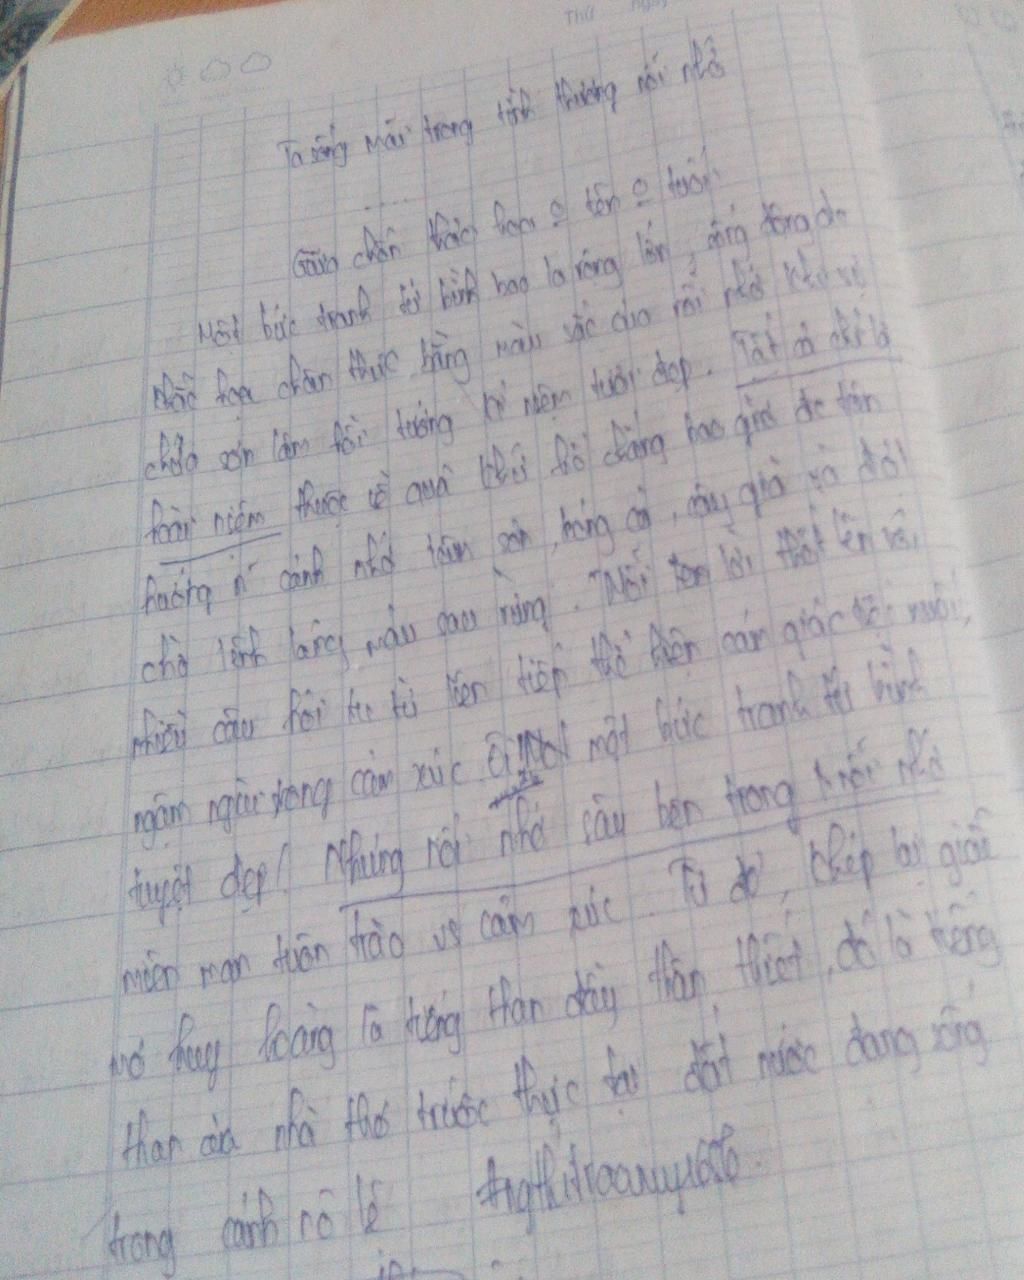 Thứ ngày
Ta sống mãi trong tình thương nỗi nhớ
.....
Giữa chốn thảo hoa o tên o tuổi
Một bức tranh tứ bình bao la rộng lớn, sống động đc
phác họa chân thực bằng màu sắc của nỗi nhớ
chúa sơn lâm hồi tưởng kỉ niệm tươi đẹp. Tất cả chỉ là
hoài niệm thuộc về quá khứ hổ chẳng bao giờ đc tận
hưởng n~ cảnh nhớ sơn, bóng cả, cây già và đôi
chờ lênh láng máu sau rừng. lời thốt lên với
nhiều câu hỏi tu từ liên tiếp thể hiện cảm giác tiếc nuối,
ngậm ngùi trong cảm xúc. Ôi một bức tranh tứ bình
tuyệt đẹp! Nhưng nỗi nhớ sâu bên trong nỗi nhớ
miên man tuôn trào vs cảm xúc. Từ đó, khép lại giấc
mơ huy hoàng là tiếng than đầy thân thiết, đó là tiếng
than của nhà thơ trước thực tại đất nước đang sống
trong cảnh nô lệ